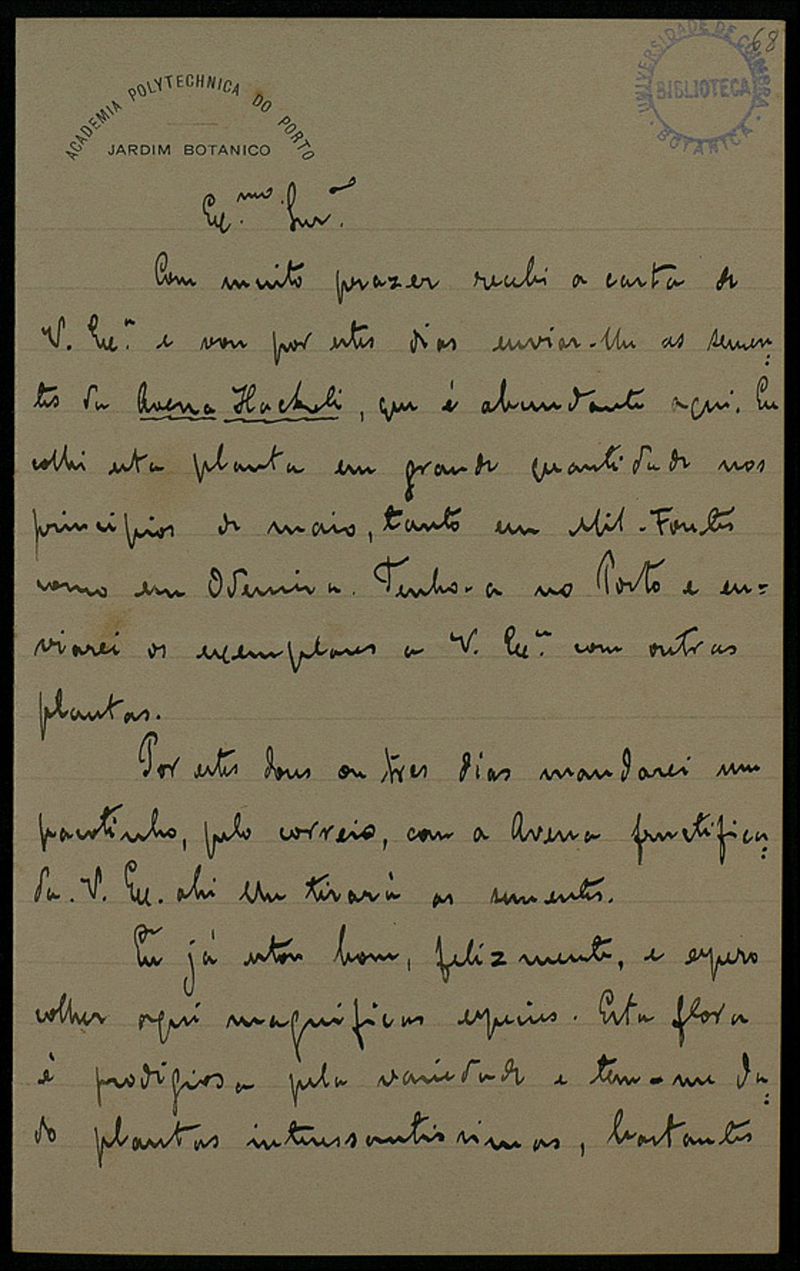 68
UNIVERSIDADE DE COIMBRA
BIBLIOTECA
BOTANICA
ACADEMIA POLYTECHNICA DO PORTO
JARDIM BOTANICO
Ex.mo Snr.
Com muito prazer recebi a carta de
V. Ex.a e vou por estes dias enviar-lhe as semen=
tes da Avena Hackeli, que é abundante aqui. Eu
colhi esta planta em grande quantidade nos
principios de maio, tanto em Mil-Fontes
como em Odemira. Tenho-a no Porto e en=
viarei os exemplares a V. Ex.a com outras
plantas.
Por estes dous ou tres dias mandarei um
pacotinho, pelo correio, com a Avena fructifica=
da. V. Ex. ahi lhe tirará as sementes.
Eu já estou bom, felizmente, e espero
colher aqui magnificas especies. Esta flora
é prodigiosa pela variedade e tem-me da=
do plantas interessantissimas, bastantes